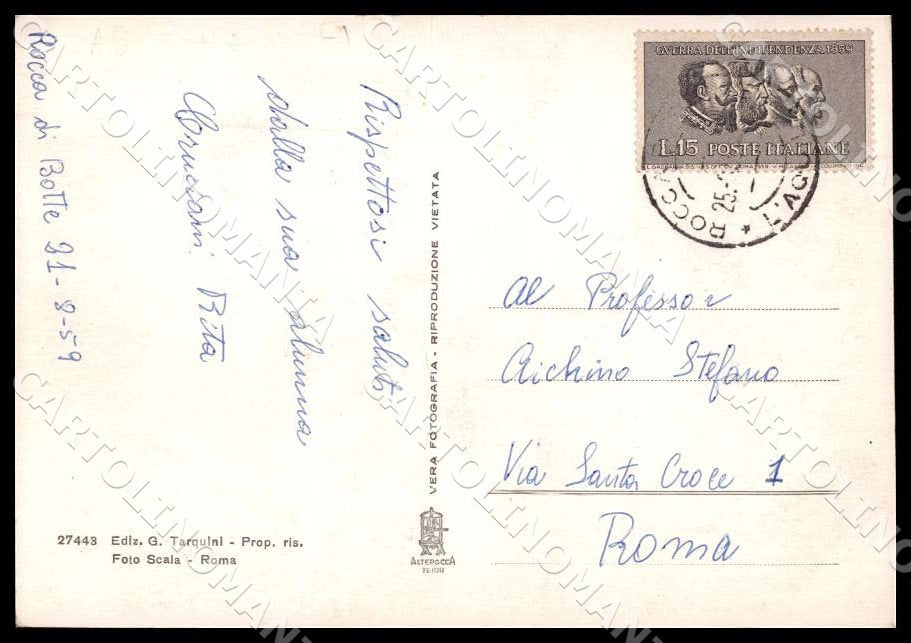 Rocca di Botte 21-8-59
Rispettosi saluti
dalla sua alunna
Cruciani Rita
VERA FOTOGRAFIA - RIPRODUZIONE VIETATA
27443 Ediz. G. Tarquini - Prop. ris.
Foto Scala - Roma
ALTEROCCA
TERNI
GUERRA DELL'INDIPENDENZA 1859
L.15 POSTE ITALIANE
ROCCA
25.
* L'AQU
Al Professor
Aichino Stefano
Via Santa Croce 1
Roma
CARTOLINOMANIA